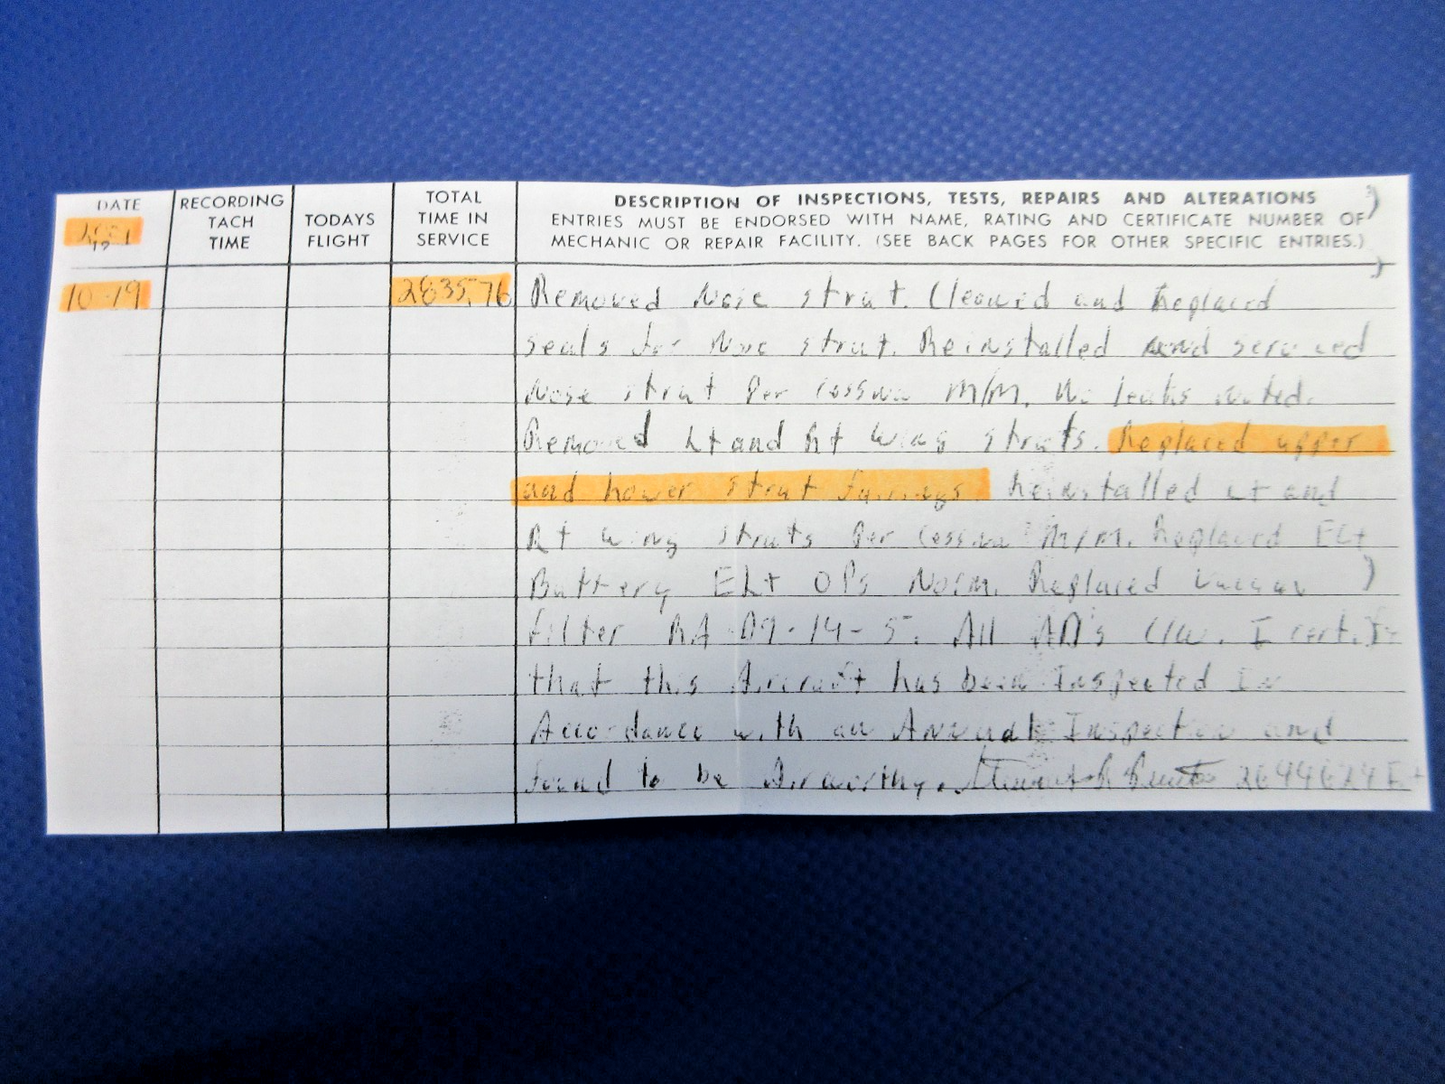 DATE
RECORDING TACH TIME
TODAYS FLIGHT
TOTAL TIME IN SERVICE
DESCRIPTION OF INSPECTIONS, TESTS, REPAIRS AND ALTERATIONS
ENTRIES MUST BE ENDORSED WITH NAME, RATING AND CERTIFICATE NUMBER OF
MECHANIC OR REPAIR FACILITY. (SEE BACK PAGES FOR OTHER SPECIFIC ENTRIES.)
10-19
2835.76
Removed Nose strut. Cleaned and Replaced
seals for Nose strut. Reinstalled and serviced
Nose strut Per Cessna M/M. No leaks noted.
Removed Lt and Rt Wing struts. Replaced upper
and Lower strut fairings Reinstalled Lt and
Rt Wing struts Per Cessna M/M. Replaced ELt
Battery ELt OPs Norm. Replaced Vacuum
filter RA-D9-14-5. All AD's C/W. I certify
that this Aircraft has been Inspected In
Accordance with an Annual Inspection and
found to be Airworthy.